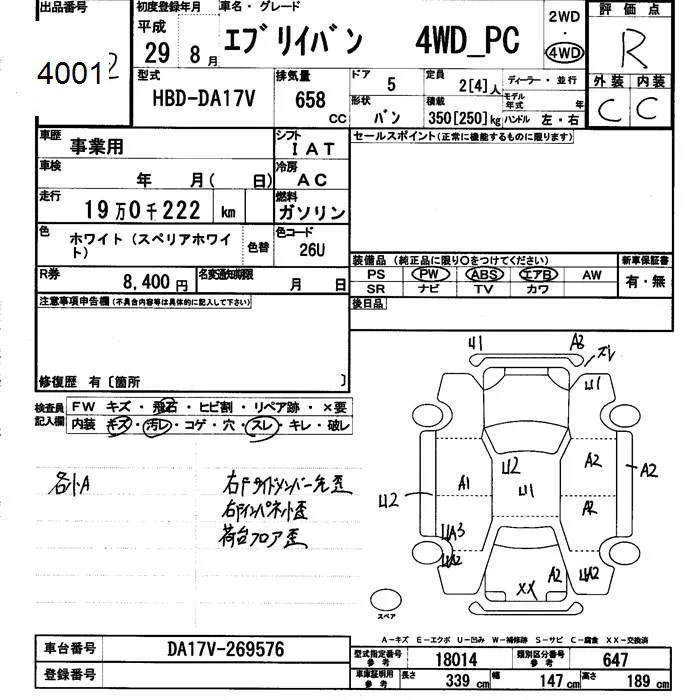 出品番号 初度登録年月 車名・グレード 評価点
平成 29年 8月 エブリイバン 4WD_PC 2WD 4WD R
40012
型式 排気量 ドア 5 定員 2[4]人 ディーラー・並行 外装 内装
HBD-DA17V 658 CC 形状 バン 積載 350[250]kg モデル年式 年 ハンドル 左・右 C C
車歴 事業用 シフト IAT セールスポイント(正常に機能するものに限ります)
車検 年 月( 日) 冷房 AC
走行 19万0千222 km 燃料 ガソリン
色 ホワイト(スペリアホワイト) 色替 色コード 26U
装備品(純正品に限り○をつけてください) 新車保証書
R券 8,400円 名変通知期限 月 日 PS PW ABS エアB AW 有・無
SR ナビ TV カワ
注意事項申告欄(不具合内容等は具体的に記入して下さい) 後日品
修復歴 有〔箇所 〕
検査員記入欄 FW キズ・飛石・ヒビ割・リペア跡・×要
内装 キズ・汚レ・コゲ・穴・スレ・キレ・破レ
各小A
右Fサイドメンバー先歪
右Fインパネ小歪
荷台フロア歪
U1 A3 ズレ
U1
U2 A2
A1 U1 A2 A2
U2
UA3
UA2 XX A2 UA2
スペア
A-キズ E-エクボ U-凹み W-補修跡 S-サビ C-腐食 XX-交換済
車台番号 DA17V-269576 型式指定番号 参考 18014 類別区分番号 参考 647
登録番号 車庫証明用 参考 長さ 339 cm 幅 147 cm 高さ 189 cm